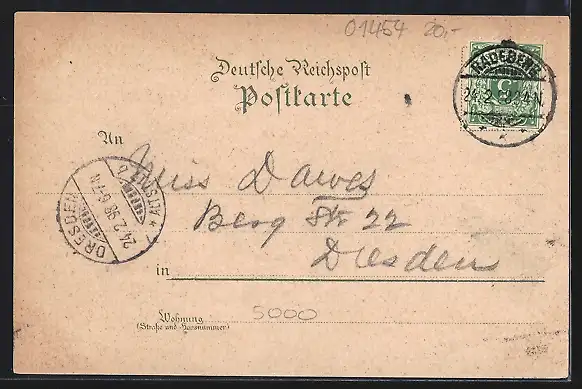 01454 20,-
Deutsche Reichspost
Postkarte
RADEBERG
24 2 98 3-4 N.
5
An
Miss Dawes
Berg Str 22
Dresden
DRESDEN
ALTSTADT
24.2.98 6-7 N
in
Wohnung
(Straße und Hausnummer)
5000